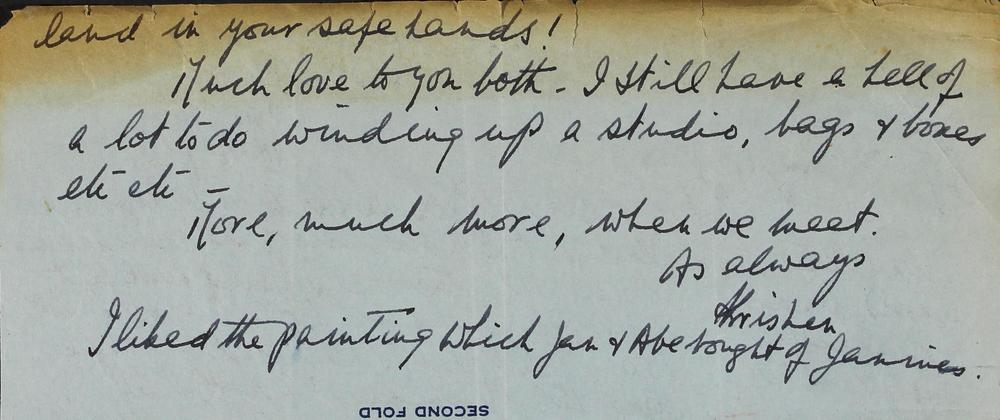 land in your safe hands!
Much love to you both - I still have a hell of
a lot to do winding up a studio, bags & boxes
etc etc -
More, much more, when we meet.
As always
Krishen
I liked the painting which Jan & Abe bought of Janines.
SECOND FOLD